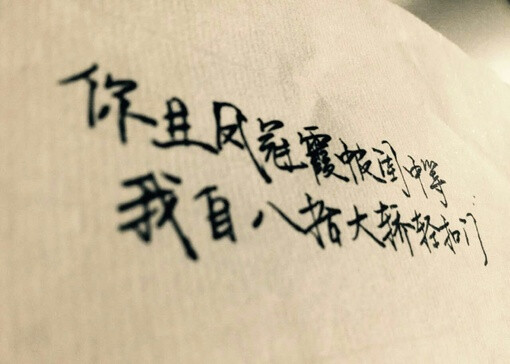 你且凤冠霞帔闺中等
我自八抬大轿轻扣门